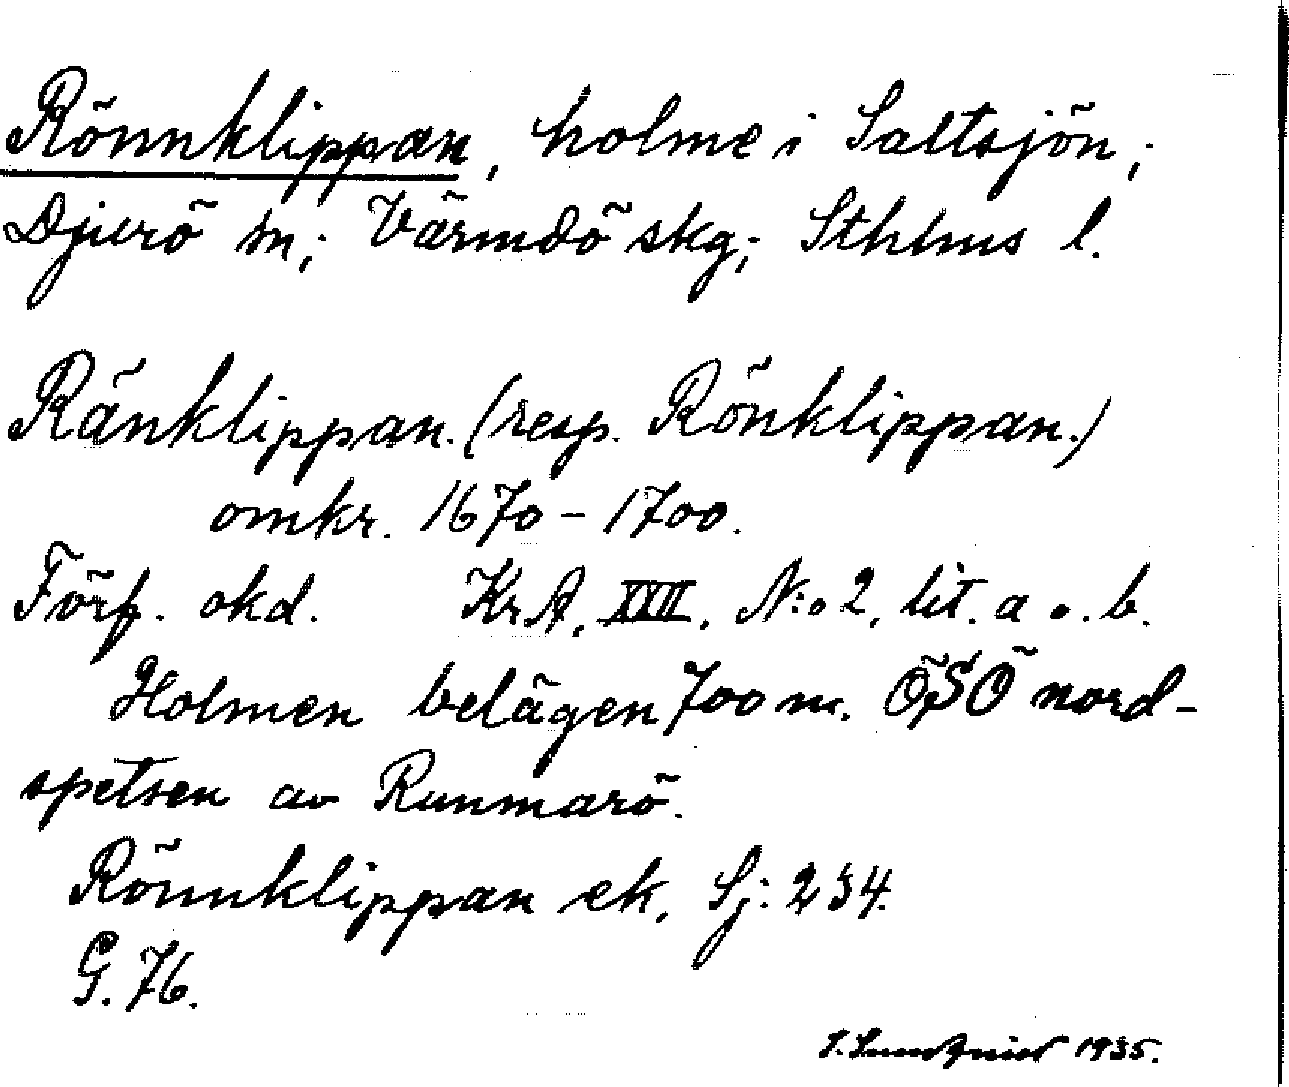 Rönnklippan, holme i Saltsjön;
Djurö sn; Värmdö skg; Sthlms l.
Ränklippan. (resp. Rönklippan.)
omkr. 1670-1700.
Förf. okd. KrA, XXII, N:o 2, lit. a o. b.
Holmen belägen 700 m. ÖSÖ nord-
spetsen av Runmarö.
Rönnklippan ek, Sj: 234.
G. 76.
1935.